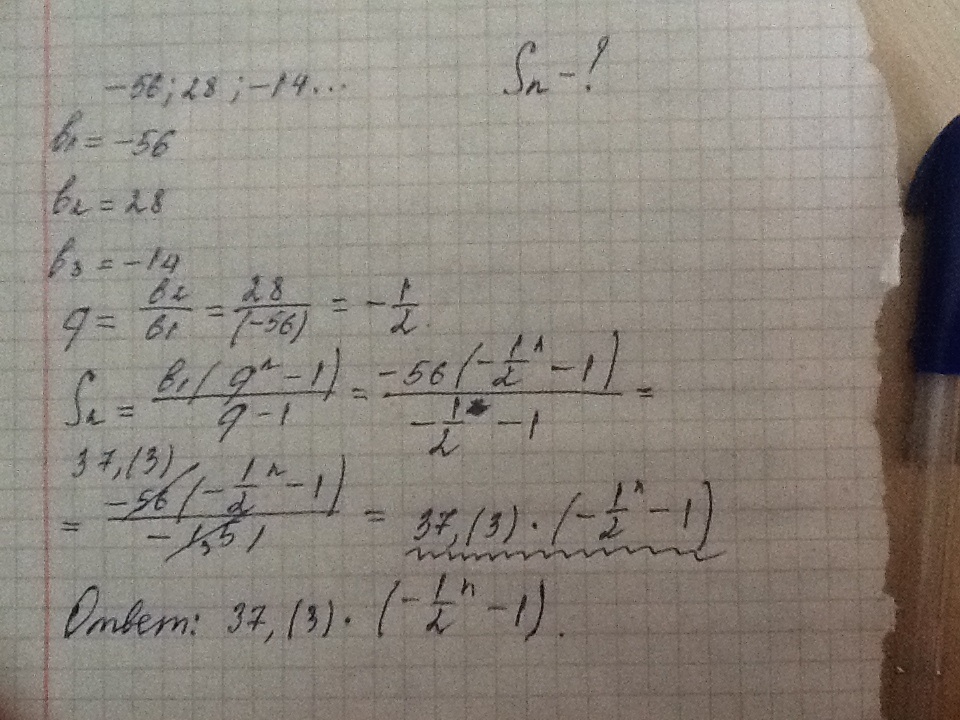 -56; 28; -14... Sn - ?
b₁ = -56
b₂ = 28
b₃ = -14
q = b₂/b₁ = 28/(-56) = -1/2.
Sₙ = b₁(qⁿ - 1)/(q - 1) = -56(-1/2ⁿ - 1)/(-1/2 - 1) =
37,(3)
= -56(-1/2ⁿ - 1)/(-1,5) = 37,(3) · (-1/2ⁿ - 1)
Ответ: 37,(3) · (-1/2ⁿ - 1).